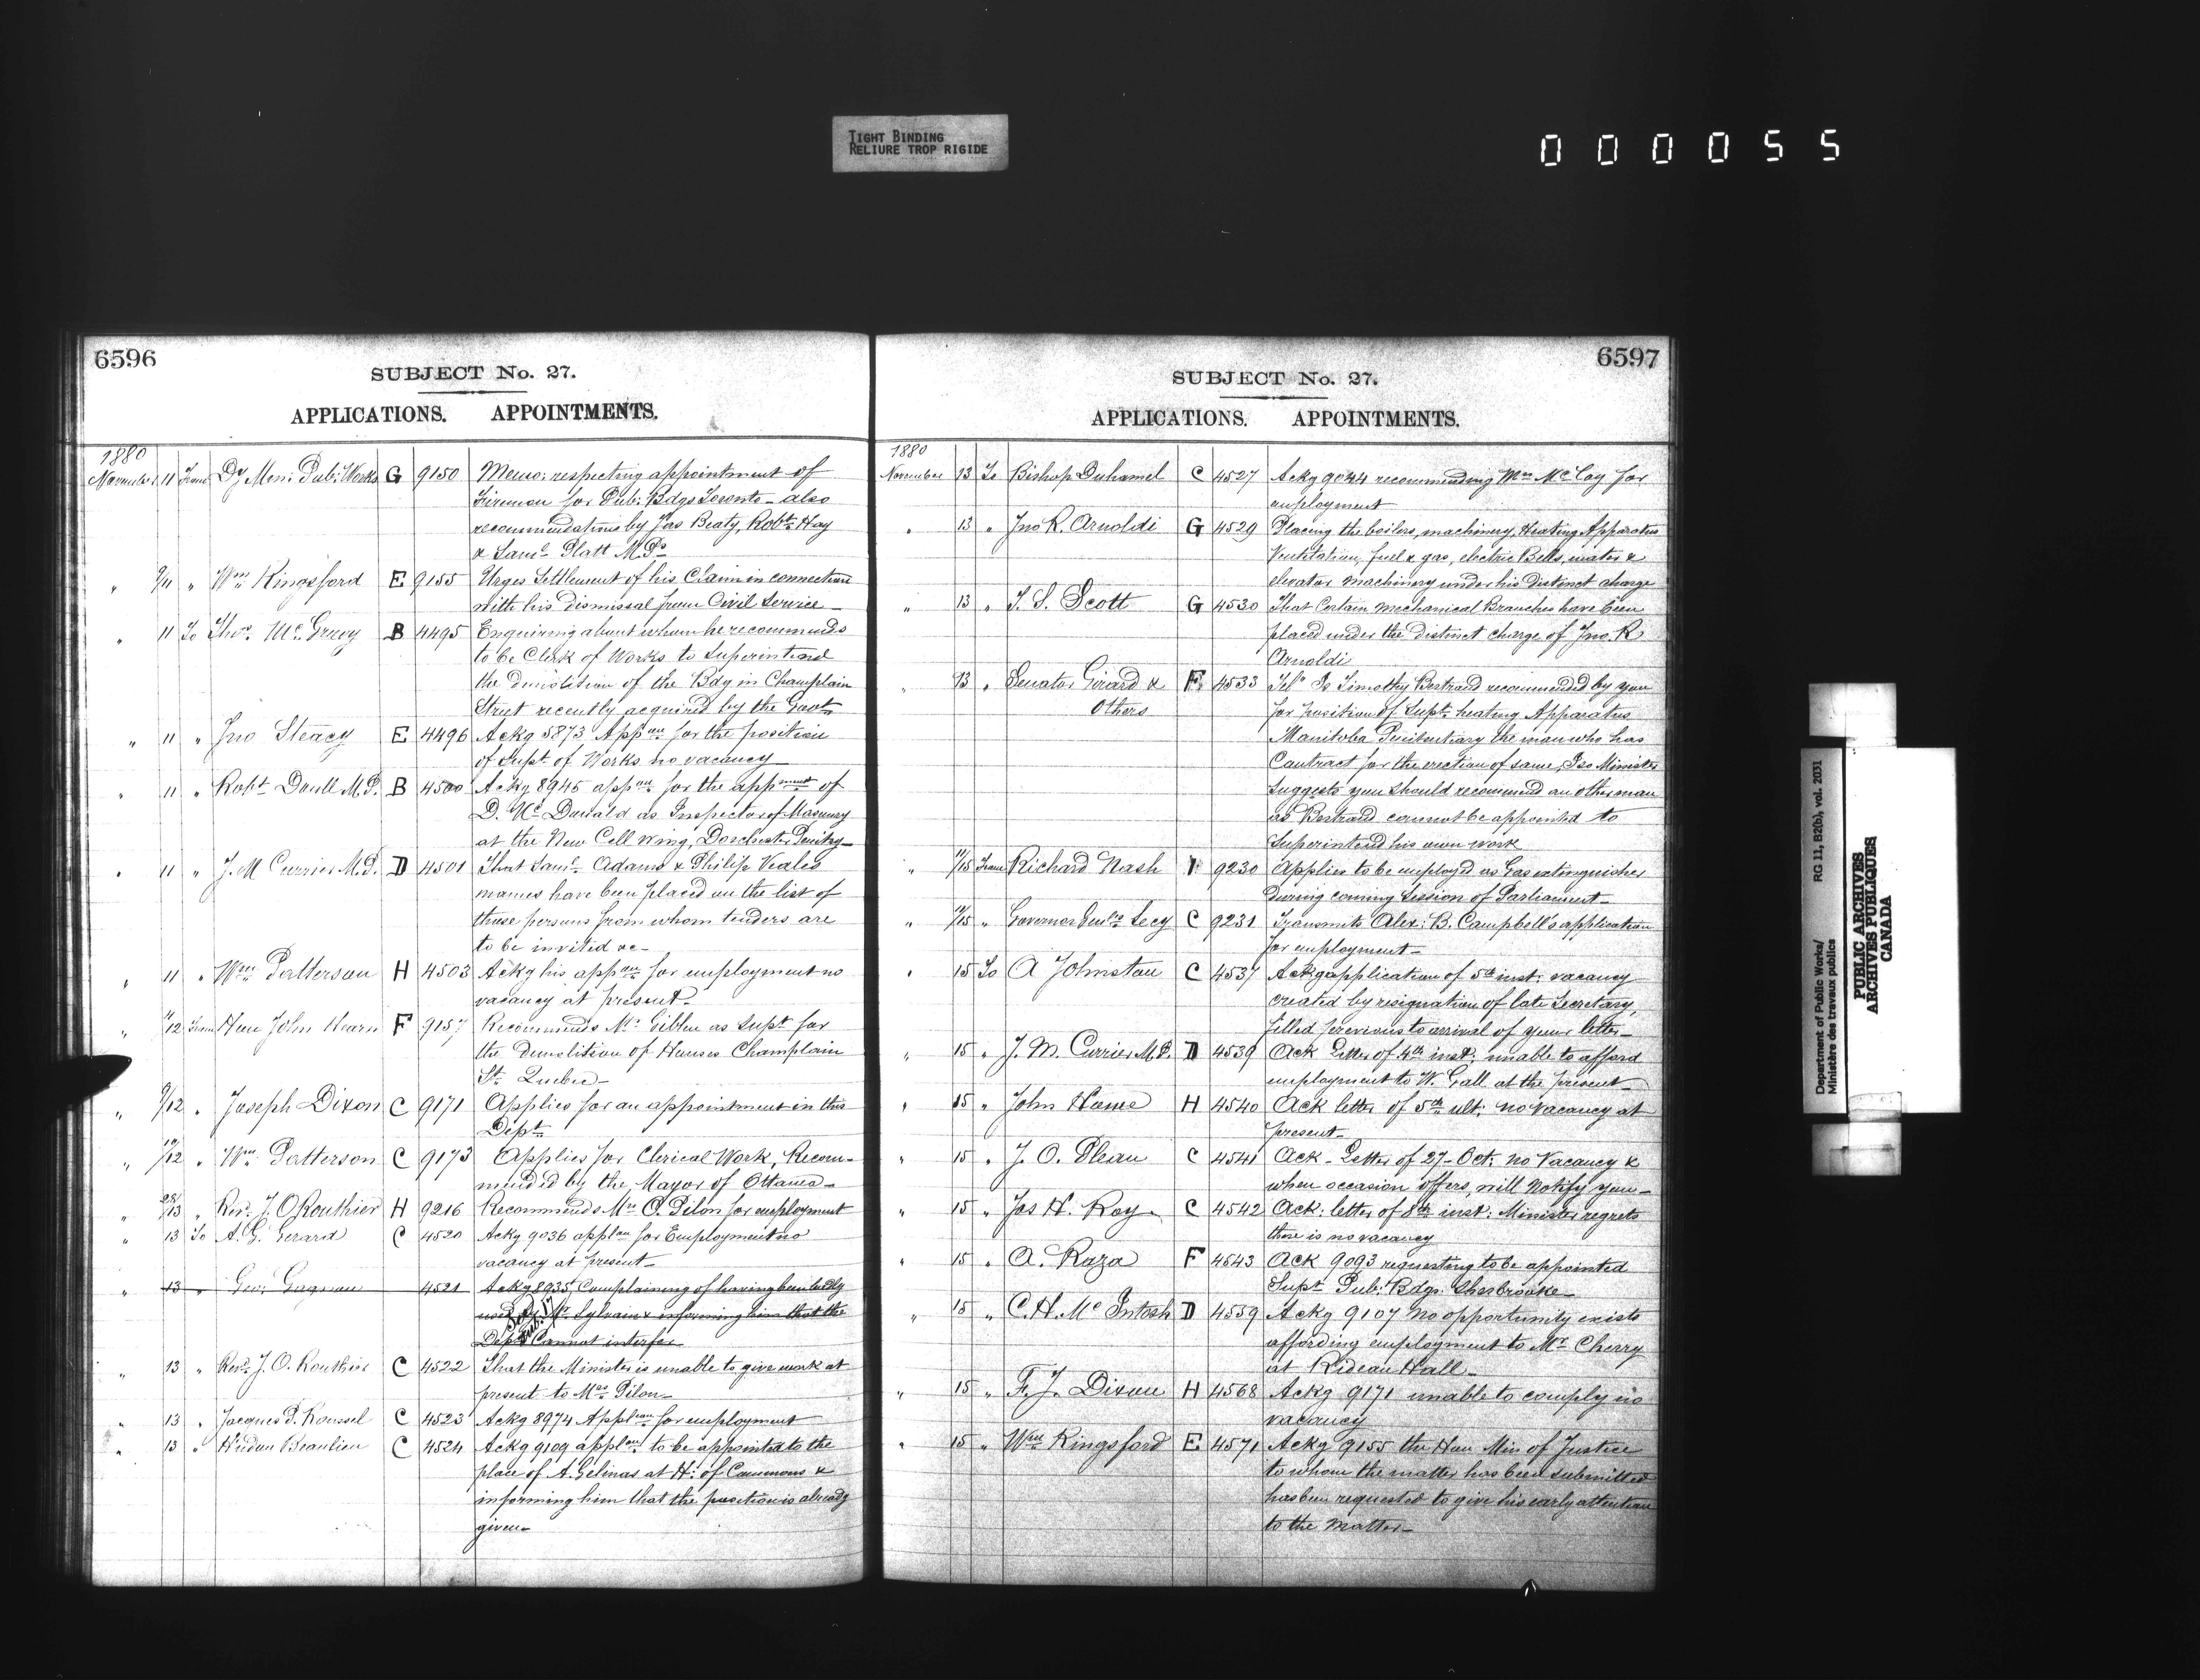 TIGHT BINDING
RELIURE TROP RIGIDE
0 0 0 0 5 5
6596
SUBJECT No. 27.
APPLICATIONS. APPOINTMENTS.
1880
November 11 From Dy Min: Pub: Works G 9150 Memo: respecting appointment of
Fireman for Pub: Bdgs Toronto - also
recommendations by Jas Beaty, Robt. Hay
& Saml. Platt M.Ps
" 9/11 " Wm. Kingsford E 9155 Urges Settlement of his Claim in connection
with his dismissal from Civil Service -
" 11 To Thos. McGreevy B 4495 Enquiring about whom he recommends
to be Clerk of Works to Superintend
the demolition of the Bdg in Champlain
Street recently acquired by the Govt.
" 11 " Jno Steacy E 4496 Ackg 5873 Appon for the position
of Supt of Works no vacancy
" 11 " Robt. Doull M.P. B 4500 Ackg 8945 appon for the appment of
D. McDonald as Inspector of Masonry
at the New Cell Wing, Dorchester Penitry -
" 11 " J. M Currier M.P. D 4501 That Saml. Adams & Philip Veales
names have been placed on the list of
those persons from whom tenders are
to be invited &c -
" 11 " Wm Patterson H 4503 Ackg his appon for employment no
vacancy at present -
" /12 From Hon John Hearn F 9157 Recommends Mr. Giblin as Supt for
the demolition of Houses Champlain
St. Quebec -
" 9/12 " Joseph Dixon C 9171 Applies for an appointment in this
Dept.
" 10/12 " Wm. Patterson C 9173 Applies for Clerical Work, Recom-
mended by the Mayor of Ottawa -
" 28/13 " Revd. J. O Routhier H 9216 Recommends Mr O. Pilon for employment
" 13 To A. G. Gerard C 4520 Ackg 9036 applon for Employment no
vacancy at present -
" 13 " Geo: Gagnon 4521 Ackg 8935, Complaining of having been badly
used by Mr. Sylvain & informing him that the
Dept. Cannot interfer
" 13 " Revd. J. O. Routhier C 4522 That the Minister is unable to give work at
present to Mr. Pilon -
" 13 " Jacques P. Roussel C 4523 Ackg 8974 Applon for employment
" 13 " Hudon Beaulieu C 4524 Ackg 9109 applon to be appointed to the
place of A. Gelinas at H: of Commons &
informing him that the position is already
given -
6597
SUBJECT No. 27.
APPLICATIONS. APPOINTMENTS.
1880
November 13 To Bishop Duhamel C 4527 Ackg 9044 recommending Mrs McCoy for
employment
" 13 " Jno R. Arnoldi G 4529 Placing the boilers, machinery, Heating Apparatus
Ventilation, fuel & gas, electric Bells, water &
elevator machinery under his distinct charge
" 13 " T. S. Scott G 4530 That Certain mechanical Branches have been
placed under the distinct charge of Jno. R
Arnoldi
" 13 " Senator Girard & F 4533 Is Timothy Bertrand recommended by you
Others for position of Supt. heating Apparatus
Manitoba Penitentiary the man who has
Contract for the erection of same, If so Minister
suggests you should recommend an other man
as Bertrand cannot be appointed to
Superintend his own work
" 11/15 From Richard Nash F 9230 Applies to be employed as Gas extinguisher
during coming Session of Parliament -
" 10/15 " Governor Genls Secy C 9231 Transmits Alex: B. Campbell's application
for employment -
" 15 To A Johnston C 4537 Ackg application of 5th inst: vacancy
created by resignation of late Secretary,
filled previous to arrival of your letter -
" 15 " J. M. Currier M.P. D 4539 Ack Letter of 4th inst: unable to afford
employment to W. Gall at the present -
" 15 " John Home H 4540 Ack letter of 5th ult: no vacancy at
present -
" 15 " J. O. Pleau C 4541 Ack - Letter of 27 - Oct: no Vacancy &
when occasion offers, will Notify you -
" 15 " Jas H. Roy C 4542 Ack: letter of 8th inst: Minister regrets
there is no vacancy
" 15 " A. Roza F 4543 Ack 9093 requesting to be appointed
Supt. Pub: Bdgs. Sherbrooke -
" 15 " C. H. McIntosh D 4559 Ackg 9107 No opportunity exists
affording employment to Mr. Cherry
at Rideau Hall -
" 15 " F. J. Dixon H 4568 Ackg 9171 unable to comply no
vacancy
" 15 " Wm Kingsford E 4571 Ackg 9155 the Hon Min of Justice
to whom the matter has been submitted
has been requested to give his early attention
to the Matter -
Department of Public Works/ RG 11, B2(b), vol. 2031
Ministère des travaux publics
PUBLIC ARCHIVES
ARCHIVES PUBLIQUES
CANADA